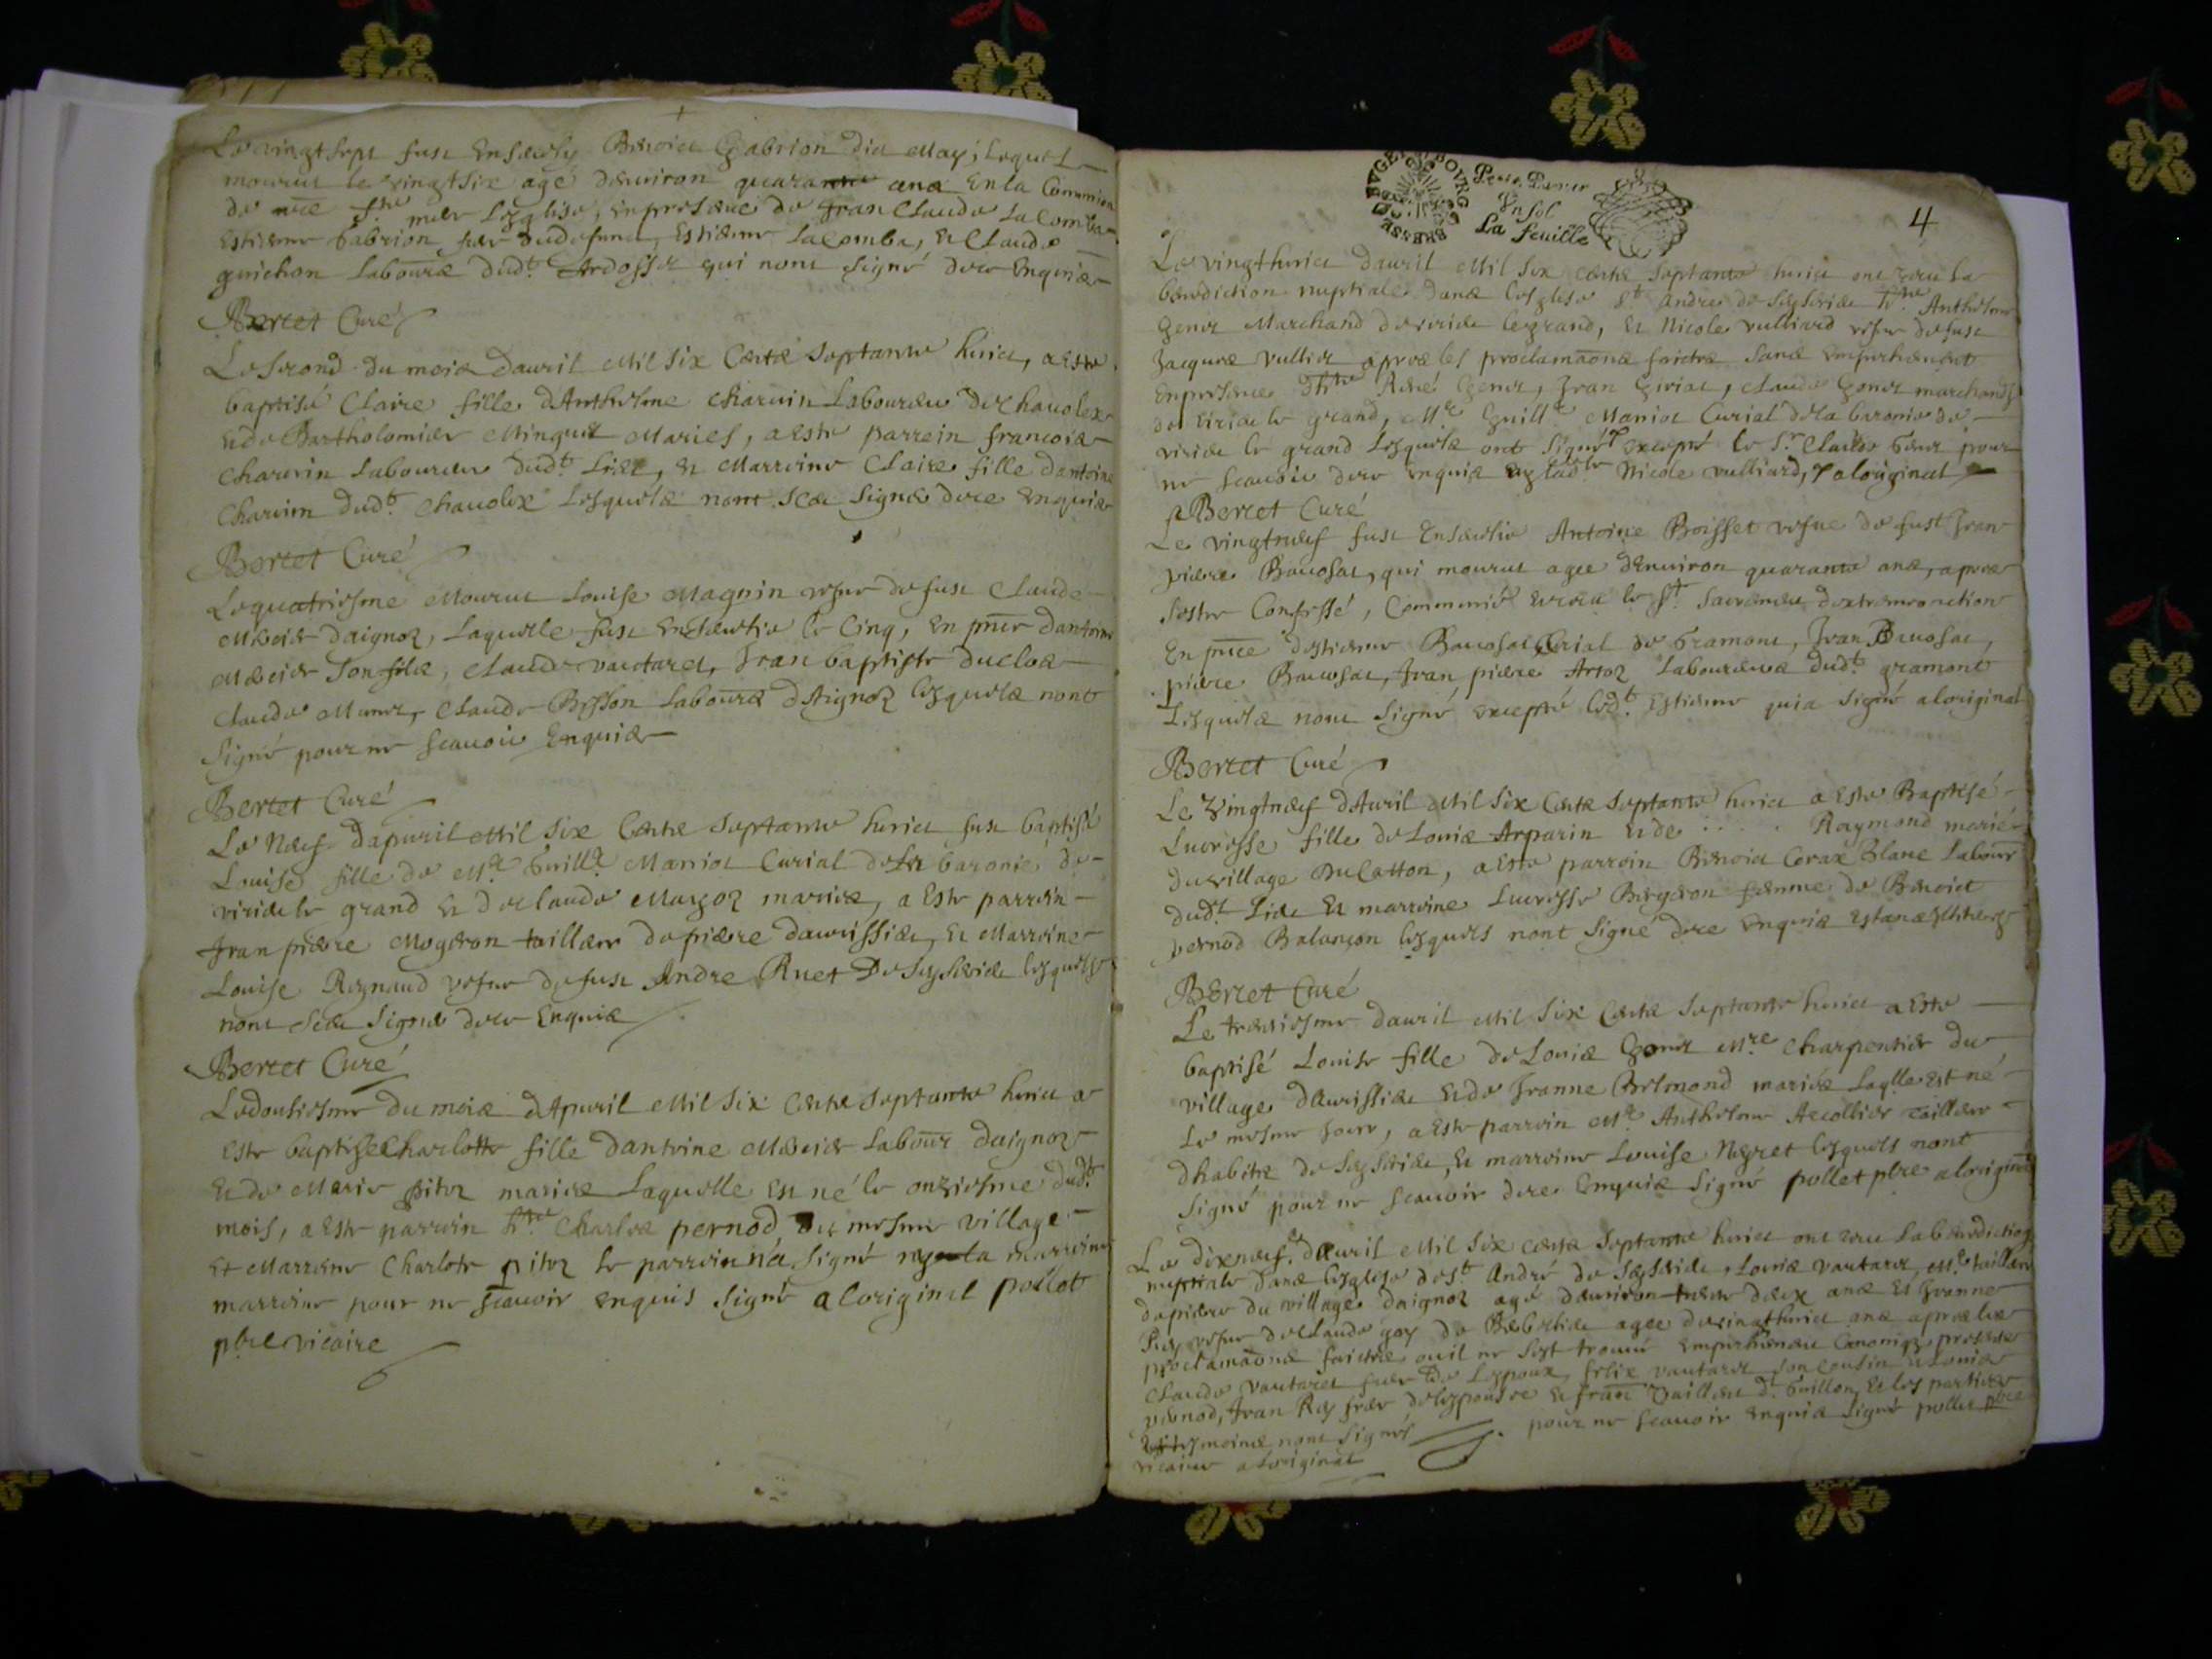 Le vingt sept fust Ensevely Benoict Gabrion dict May, lequel
mourut le vingt six agé denviron quarante ans En la Commnion
de nre Ste mere Lesglise, en presence de Jean Claude La Comba
Estienne Gabrion frere dudefunct, Estienne Lacomba, et Claude
guichon Laboure dudt Ardosset qui nont signé dece Enquis
Bertet Curé
Le second du mois davril Mil six Cents septante huict, a este
baptisé Claire fille dAnthelme Charvin Laboureur de Chavolex
et de Bartholomier Minguet Maries, a este parrein francois
Charvin Laboureur dudt Lieu, et Marreine Claire fille dantoine
Charvin dudt Chavolex Lesquels nont sceu signer dece Enquis
Bertet Curé
Le quatriesme Mourut Louise Magnin vefve de fust Claude
Mercier daignoz, Laquelle fust Ensevelie le Cinq, En pnce dantoine
Mercier son fils, Claude vautaret, Jean baptiste duclos
Claude Munet, Claude Bisson Laboure dAignoz lesquels nont
Signé pour ne scavoir Enquis
Bertet Curé
Le Neuf dapvril Mil six Cents septante huict fust baptisé
Louise fille de Me Guille Marriot Curial de la baronie de
virieu le grand et de Claude Mayoz maries, a este parrein
Jean pierre Mogeron tailleur de pierre davrissieu, et Marreine
Louise Reynaud vefve de fust Andre Ruet De Seyssieu lesquels
nont sceu signer dece Enquis
Bertet Curé
Le dousiesme du mois dApvril Mil six Cents septante huict a
este baptisee Charlotte fille dantoine Mercier Labour daignoz
et de Marie pitoz maries Laquelle est né le onziesme dudt
mois, a este parrein hte Charles pernod du mesme village
et Marreine Charlote pitoz le parrein na signé ny la marreine
marreine pour ne scavoir enquis signé a loriginel pollet
pbre vicaire
4
BRESSE BUGEY BOURG
Petit Papier
Un sol
La feuille
Le vingt huict davril Mil six cents septante huict ont receu la
benediction nuptiale dans lesglise St André de Seyssieu hte Anthelme
Genet Marchand de virieu legrand, et Nicole vulliard vefve de fust
Jacques vulliet apres les proclamaons faictes sans empeschement
En presence dhte René Genet, Jean Giriat, Claude Genet marchands
de virieu le grand, Me Guille Marriot Curial de la baronie de
virieu le grand Lesquels ont signé excepté le Sr Claude Genet pour
ne scavoir dece enquis et ladte Nicole vulliard, a loriginal
Bertet Curé
Le vingtneuf fust Ensevelie Antoine Boisset vefve de fust Jean
pierre Bavosat, qui mourut agee denviron quarante ans, apres
sestre Confessé, Communié et receu le St Sacrement dextremeonction
En pnce destienne Bavosat Curial de Gramont, Jean Bavosat,
pierre Bavosat, Jean pierre Artoz Laboureurs dudt gramont
Lesquels nont signé excepté ledt Estienne qui a signé a loriginal
Bertet Curé
Le Vingtneuf dAvril Mil six Cents septante huict a este Baptisé
Lucresse fille de Louis Arparin et de . . . . . Raymond marié
du village DuCatton, a este parrein Benoict Cerax Blanc Labour
dudt Lieu et marreine Lucresse Bergeron femme de Benoict
pernod Balançon lesquels nont signé dece enquis
Bertet Curé
Le treziesme davril Mil six Cents septante huict a este
baptisé Louise fille de Louis Genet Mre Charpentier du
village davrissieu et de Jeanne Belmond maries laqlle est né
le mesme jour, a este parrein Me Anthelme Aecollier tailleur
dhabits de Seyssieu, et marreine Louise Neyret lesquels nont
signé pour ne scavoir dece Enquis signé pollet pbre a loriginal
Le dixneuf davril Mil six cents septante huict ont receu la benediction
nuptiale dans lesglise de St André de Seyssieu, Louis vautaret, Me tailleur
de pierre du village daignoz agé denviron trente deux ans et Jeanne
Rey vefve de Claude gay de agee de vingt huict ans apres les
proclamaons faictes ou il ne sest trouvé Empeschement Canonique presents
Claude vautaret frere De Lespoux, felix vautaret son Cousin et Louis
pernod, Jean Rey frere de lespousee et franc Vaillent dt Guillon, et les parties
tesmoins nont signé pour ne scavoir enquis signé pollet pbre
vicaire a loriginal